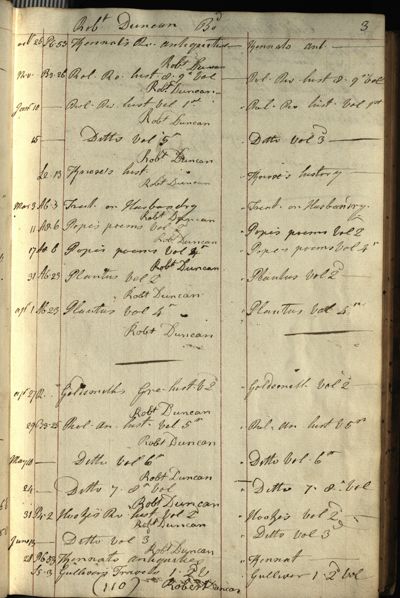 Robt Duncan Bd 3
Kennats Ro. antiquities Kennats ant.
Robt Duncan
Nov. B3.26 Rol. Ro. hist 8. 9 vol Rol. Ro hist 8. 9 vol
Robt Duncan
Jany 10 Rol. Ro. hist vol 1st Rol. Ro hist. vol 1st
Robt Duncan
15 Ditto vol 3 Ditto vol 3
Robt Duncan
L2.13 Knoxe's hist Knoxe's history
Robt Duncan
Mar 3 A6.3 Treat. on Husbandry Treat. on Husbandry
Robt Duncan
11 Pope's poems vol 2 Pope's poems vol 2
Robt Duncan
17 Pope's poems vol Pope's poems vol
Robt Duncan
31 A6.23 Plautus vol 2 Plautus vol 2
Robt Duncan
apl 1 A6.23 Plautus vol 4 Plautus vol
Robt Duncan
apl 27 Goldsmiths Gre. hist. v 2 Goldsmith vol 2
Robt Duncan
29 Rol. an. hist. vol 5 Rol. an hist v 5
Robt Duncan
May Ditto vol 6 Ditto vol 6
Robt Duncan
24 Ditto 7. 8 vol Ditto 7. 8 vol
Robt Duncan
31 Hooke's Ro hist vol 2 Hooke's vol 2
Robt Duncan
June Ditto vol 3 Ditto vol 3
Robt Duncan
28 Kennats antiquities Kennat
Gullivers Travels 1. 2 v Gulliver 1. 2 vol
(110) Robert Duncan